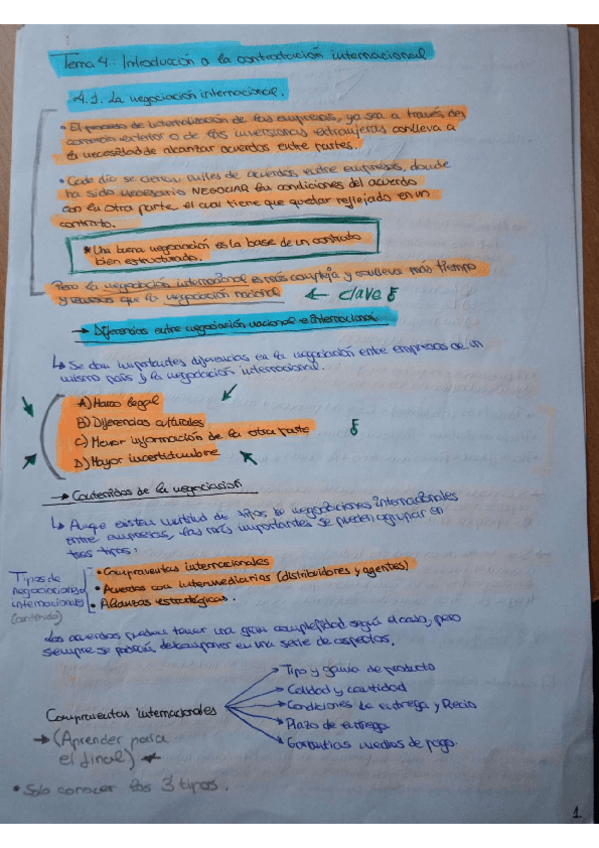 Tema 4: Introducción a la contratación internacional
4.1. La negociación internacional.
• El proceso de internalización de las empresas, ya sea a través del
comercio exterior o de las inversiones extranjeras conlleva a
la necesidad de alcanzar acuerdos entre partes.
• Cada día se cierran miles de acuerdos entre empresas, donde
ha sido necesario NEGOCIAR las condiciones del acuerdo
con la otra parte, el cual tiene que quedar reflejado en un
contrato.
* Una buena negociación es la base de un contrato
bien estructurado.
Pero la negociación internacional es más compleja y conlleva más tiempo
y recursos que la negociación nacional
← clave
→ Diferencias entre negociación nacional e internacional
↳ Se dan importantes diferencias en la negociación entre empresas de un
mismo país y la negociación internacional.
A) Marco legal
B) Diferencias culturales
C) Menor información de la otra parte
D) Mayor incertidumbre
→ Contenidos de la negociación
↳ Aunque existen multitud de tipos de negociaciones internacionales
entre empresas, las más importantes se pueden agrupar en
tres tipos:
Tipos de
negociaciones
internacionales
(contenido)
• Compraventas internacionales
• Acuerdos con intermediarios (distribuidores y agentes)
• Alianzas estratégicas.
Los acuerdos pueden tener una gran complejidad según el caso, pero
siempre se podrán descomponer en una serie de aspectos.
Compraventas internacionales
Tipo y gama de producto
Calidad y cantidad
Condiciones de entrega y Precio
Plazo de entrega
Garantías medios de pago.
→ (Aprender para
el final)
• Solo conocer los 3 tipos.
1